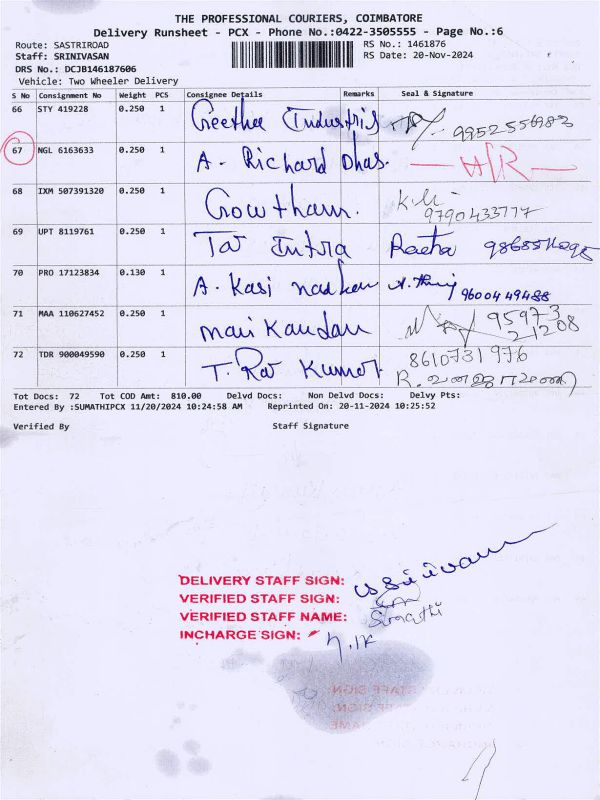 THE PROFESSIONAL COURIERS, COIMBATORE
Delivery Runsheet - PCX - Phone No.:0422-3505555 - Page No.:6
Route: SASTRIROAD RS No.: 1461876
Staff: SRINIVASAN RS Date: 20-Nov-2024
DRS No.: DCJB146187606
Vehicle: Two Wheeler Delivery
S No Consignment No Weight PCS Consignee Details Remarks Seal & Signature
66 STY 419228 0.250 1 Geetha Industris 9952556982
67 NGL 6163633 0.250 1 A. Richard Dhas.
68 IXM 507391320 0.250 1 Gowtham. 9790433777
69 UPT 8119761 0.250 1 Intra
70 PRO 17123834 0.130 1 A. Kasi 9600449488
71 MAA 110627452 0.250 1 Mani Kandan 95973
21208
72 TDR 900049590 0.250 1 T. Raj Kumar. 8610731976
R.
Tot Docs: 72 Tot COD Amt: 810.00 Delvd Docs: Non Delvd Docs: Delvy Pts:
Entered By :SUMATHIPCX 11/20/2024 10:24:58 AM Reprinted On: 20-11-2024 10:25:52
Verified By Staff Signature
DELIVERY STAFF SIGN:
VERIFIED STAFF SIGN:
VERIFIED STAFF NAME: Sumathi
INCHARGE SIGN: